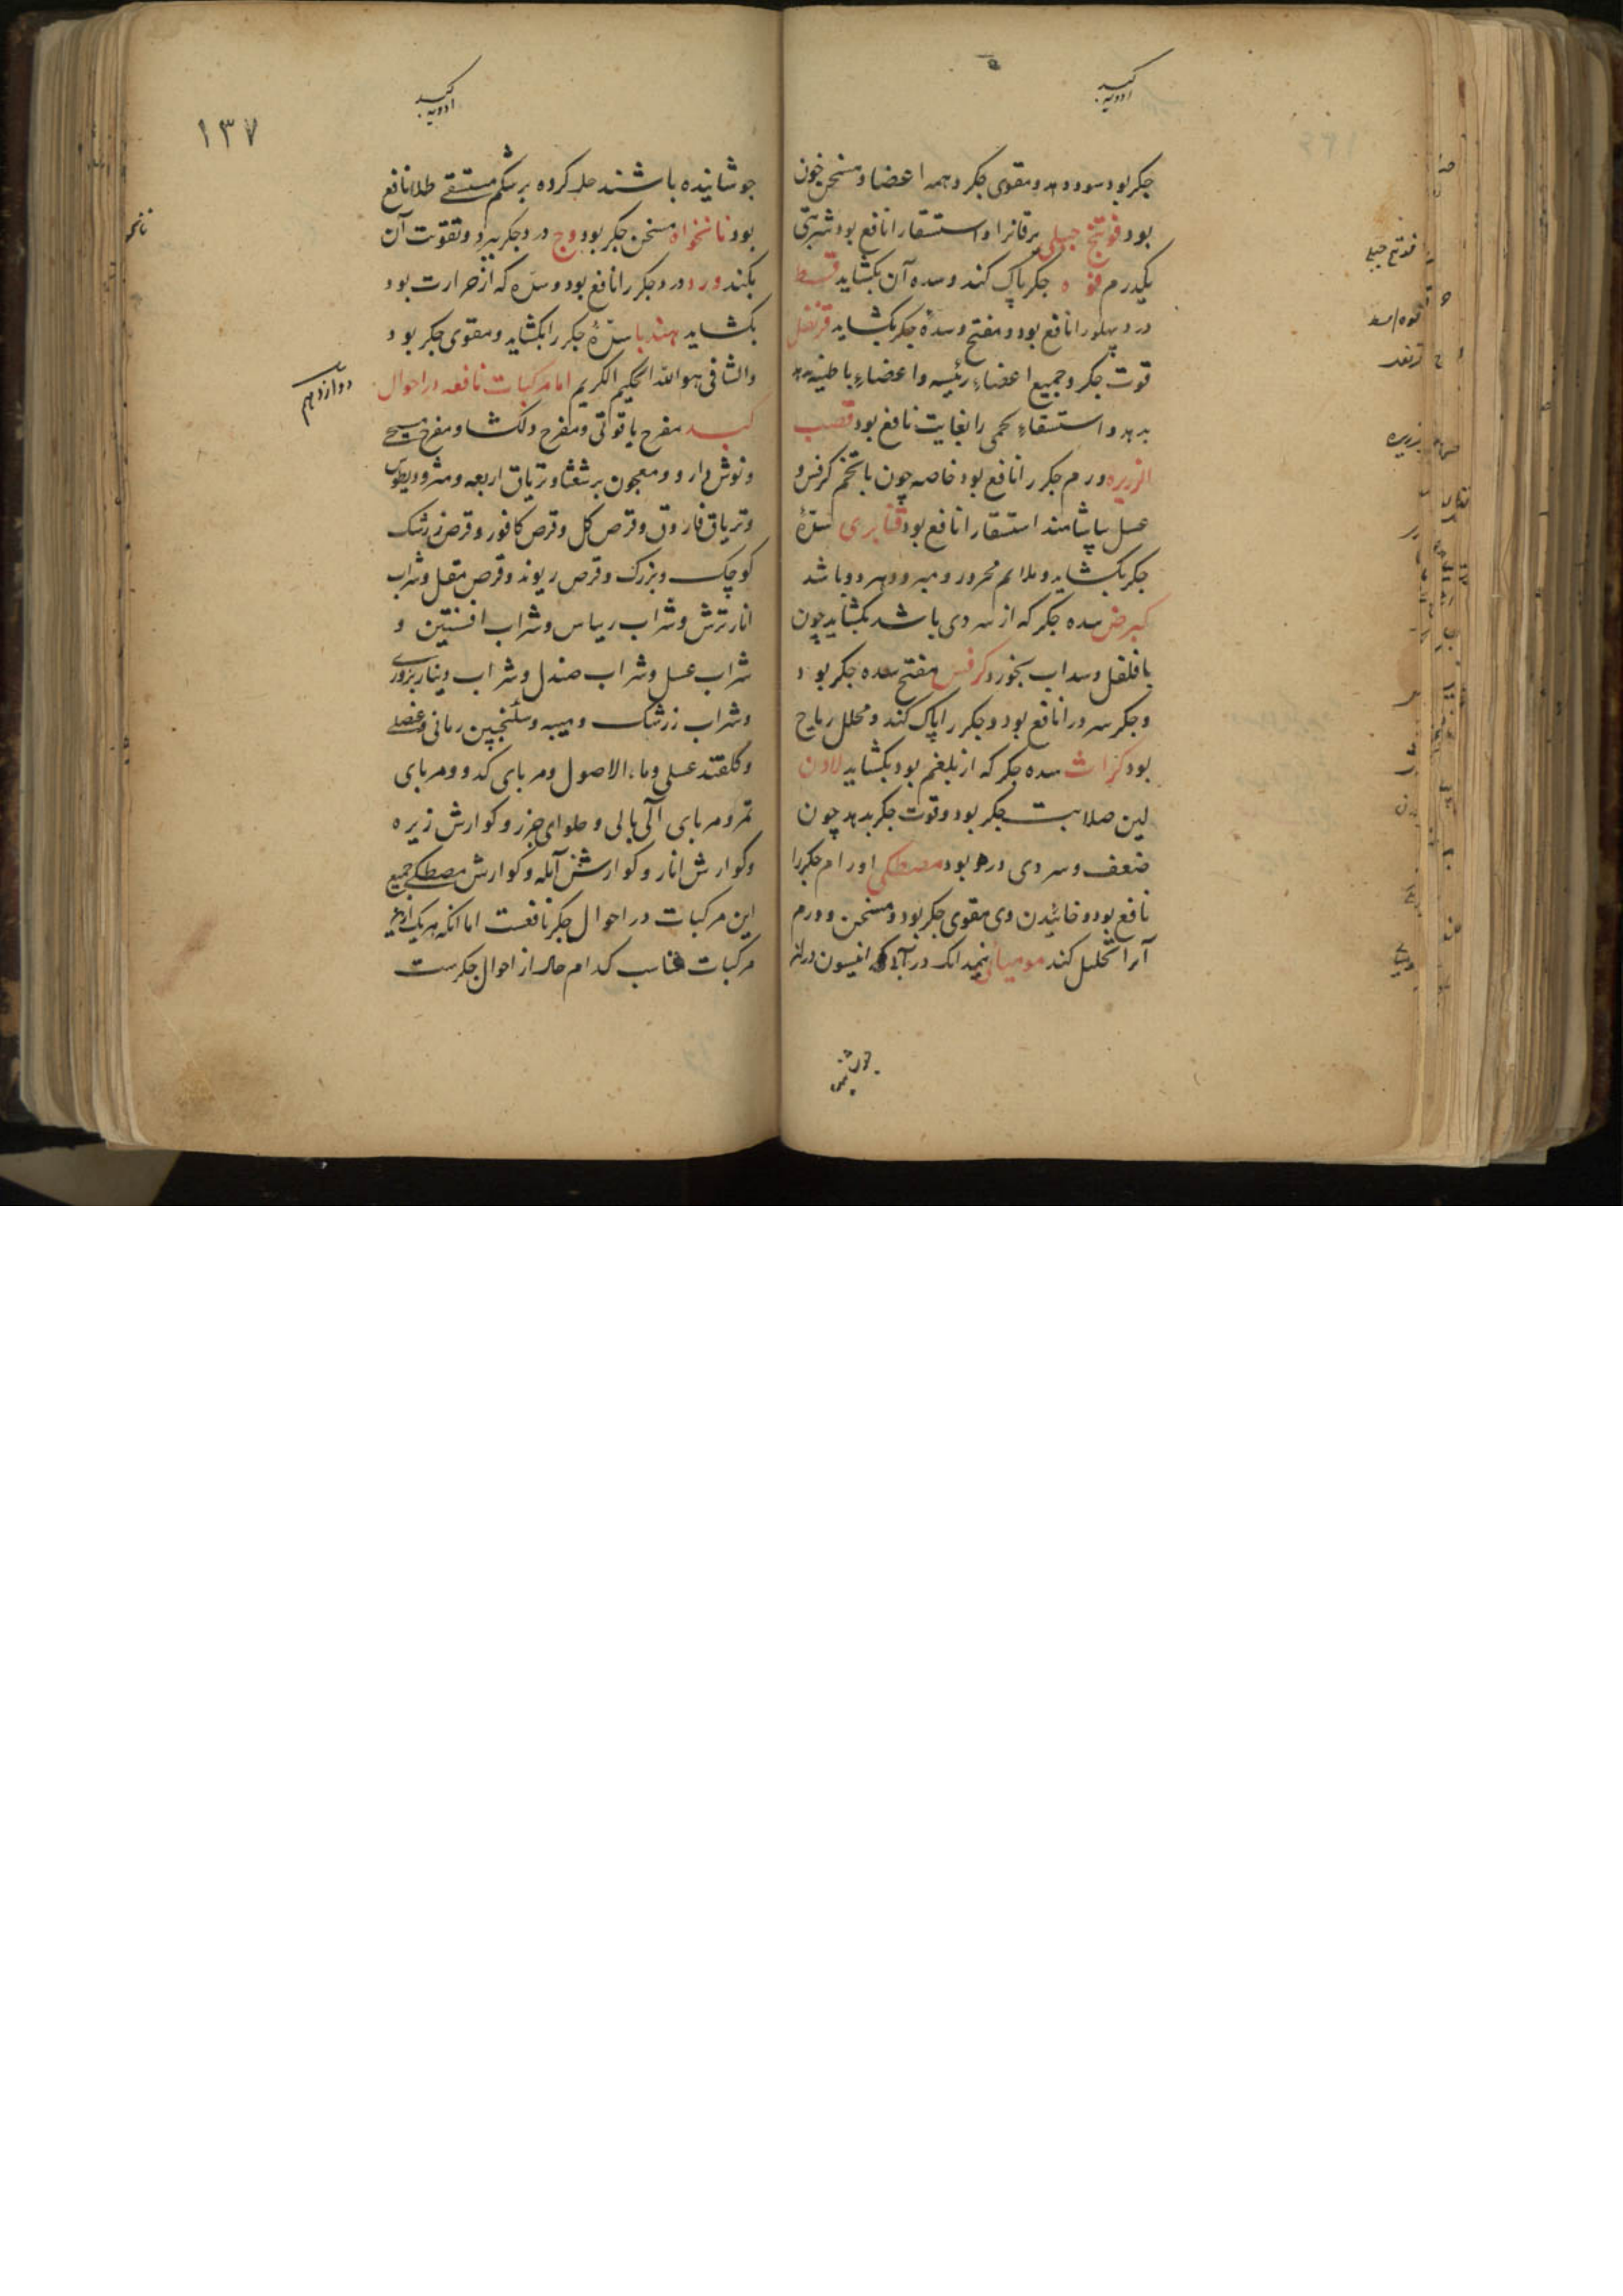 کبد
ادویه
جگر بود سود دهد و مقوی جگر و همه اعضا و مسخن خون
بود فوتنج جبلی یرقانرا و استسقا را نافع بود شربتی
یکدرم فوه جگر پاک کند و سده آن بکشاید قسط
درد پهلو را نافع بود و مفتح و سدهٔ جگر بکشاید قرنفل
قوت جگر و جمیع اعضاء رئیسه و اعضاء باطنیه
بدهد و استسقاء لحمی را بغایت نافع بود قصب
الزریره ورم جگر را نافع بود خاصه چون با تخم کرفس و
عسل بیاشامند استسقا را نافع بود قنابری سدّهٔ
جگر بکشاید و ملایم محرور و مبرود هر دو باشد
کبر سده جگر که از سردی باشد بکشاید چون
با فلفل و سداب بخورد کرفس مفتح سده جگر بود
و جگر سرد را نافع بود و جگر را پاک کند و محلل ریاح
بود کراث سده جگر که از بلغم بود بکشاید لادن
لین صلابت جگر بود و قوت جگر بدهد چون
ضعف و سردی در بود مصطکی اورام جگر را
نافع بود و خائیدن وی مقوی جگر بود و مسخن و ورم
آنرا تحلیل کند مومیائی نیمدانک در آبی که انیسون
جوشانیده
فوتنج جبلی
فوه
زریره
کبد
ادویه
۱۳۷
جوشانیده باشند حل کرده بر شکم مستسقی طلا نافع
بود نانخواه مسخن جگر بود وج درد جگر ببرد و تقویت آن
بکند ورد درد جگر را نافع بود و سدّه که از حرارت بود
بکشاید هندبا سدّهٔ جگر را بکشاید و مقوی جگر بود
والشافی هو الله الحکیم الکریم اما مرکبات نافعه در احوال
کبد مفرح یاقوتی و مفرح دلکشا و مفرح مسیحی
و نوش دارو و معجون برشعثا و تریاق اربعه و مثرودیطوس
و تریاق فاروق و قرص کل و قرص کافور و قرص زرشک
کوچک و بزرک و قرص ریوند و قرص مقل و شراب
انار ترش و شراب ریباس و شراب افسنتین و
شراب عسل و شراب صندل و شراب دینار بزوری
و شراب زرشک و میبه و سکنجبین رمانی و عنصلی
و کلقند عسلی و ماء الاصول و مربای کدو و مربای
تمر و مربای آلی بالی و حلوای جزر و کوارش زیره
و کوارش انار و کوارش آمله و کوارش مصطکی جمیع
این مرکبات در احوال جگر نافعست اما انکه هر یک از
مرکبات مناسب کدام حال از احوال جگرست
دوازدهم